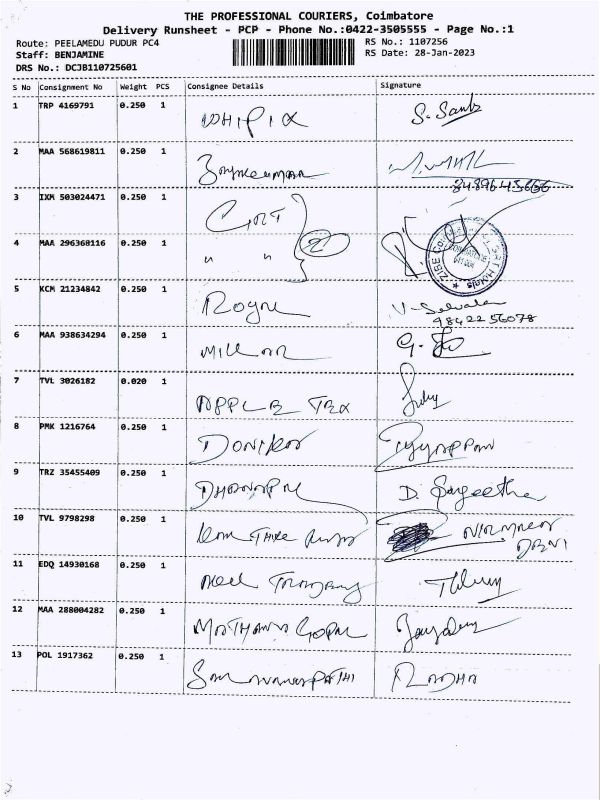 THE PROFESSIONAL COURIERS, Coimbatore
Delivery Runsheet - PCP - Phone No.:0422-3505555 - Page No.:1
Route: PEELAMEDU PUDUR PC4 RS No.: 1107256
Staff: BENJAMINE RS Date: 28-Jan-2023
DRS No.: DCJB110725601
S No Consignment No Weight PCS Consignee Details Signature
1 TRP 4169791 0.250 1
2 MAA 568619811 0.250 1
8489645666
3 IXM 503024471 0.250 1
4 MAA 296368116 0.250 1 " "
5 KCM 21234842 0.250 1 Royal
98422 56078
6 MAA 938634294 0.250 1
7 TVL 3026182 0.020 1 APPLE TEX
8 PMK 1216764 0.250 1 Iyyappan
9 TRZ 35455409 0.250 1 DHANAPAL D. Sangeetha
10 TVL 9798298 0.250 1 NIRMALA
DEVI
11 EDQ 14930168 0.250 1
12 MAA 288004282 0.250 1 MATHANA GOPAL
13 POL 1917362 0.250 1 RADHA